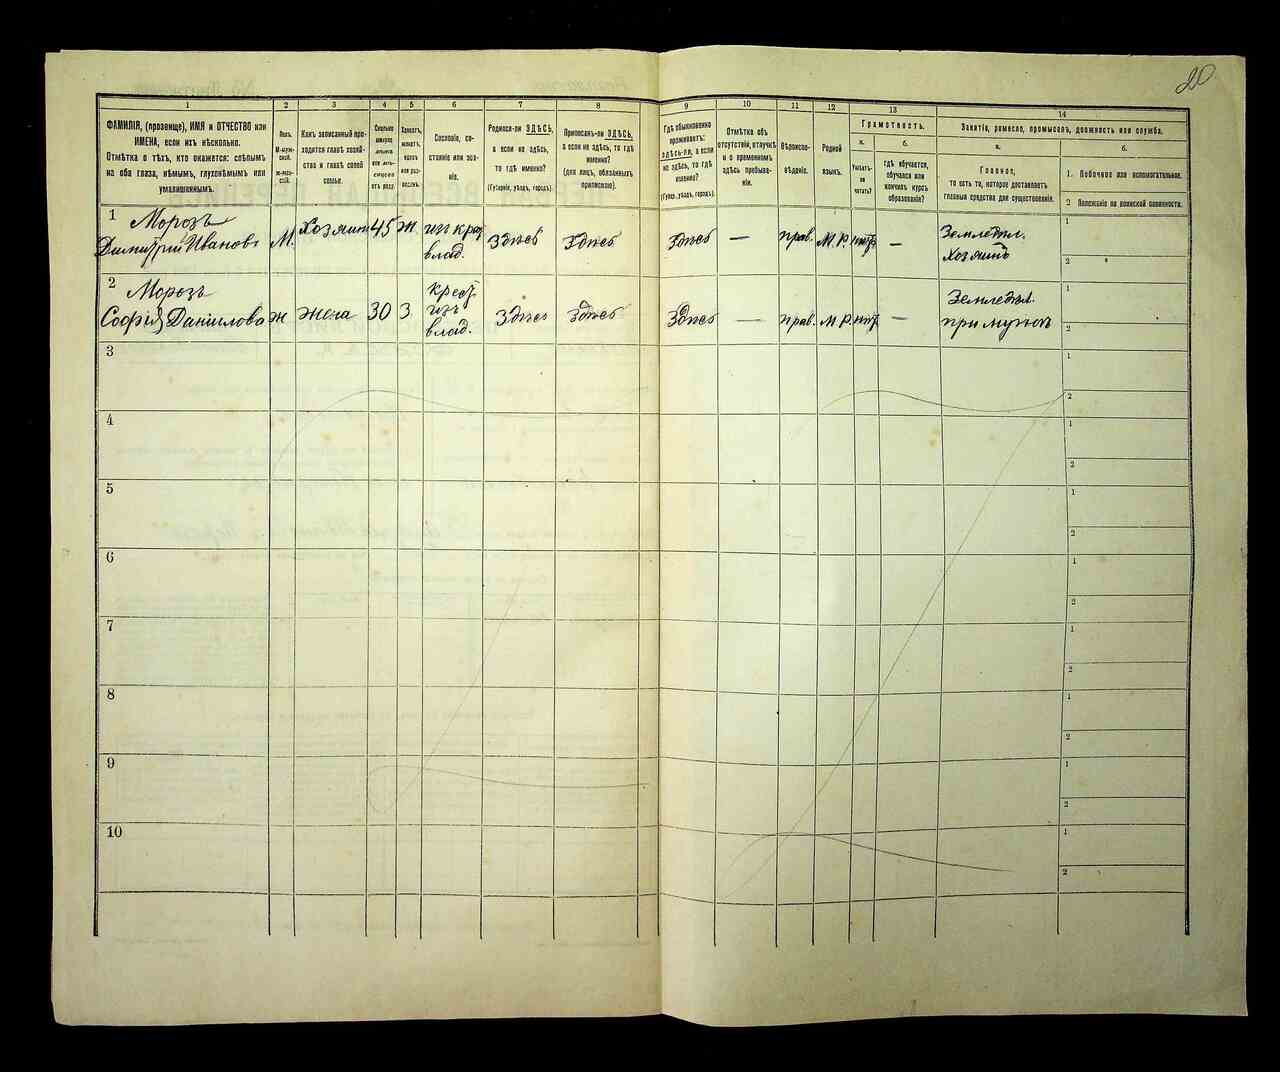 20
1
2
3
4
5
6
7
8
9
10
11
12
13
14
ФАМИЛІЯ, (прозвище), ИМЯ и ОТЧЕСТВО или
ИМЕНА, если ихъ нѣсколько.
Отмѣтка о тѣхъ, кто окажется: слѣпымъ
на оба глаза, нѣмымъ, глухонѣмымъ или
умалишеннымъ.
Полъ.
М-муж-
ской.
Ж-жен-
скій.
Какъ записанный при-
ходится главѣ хозяй-
ства и главѣ своей
семьи.
Сколько
минуло
лѣтъ
или мѣ-
сяцевъ
отъ роду.
Холостъ,
женатъ,
вдовъ
или раз-
веденъ.
Сословіе, со-
стояніе или зва-
ніе.
Родился-ли ЗДѢСЬ,
а если не здѣсь,
то гдѣ именно?
(Губернія, уѣздъ, городъ).
Приписанъ-ли ЗДѢСЬ,
а если не здѣсь, то гдѣ
именно?
(для лицъ, обязанныхъ
припискою).
Гдѣ обыкновенно
проживаетъ:
здѣсь-ли, а если
не здѣсь, то гдѣ
именно?
(Губерн., уѣздъ, городъ).
Отмѣтка объ
отсутствіи, отлучкѣ
и о временномъ
здѣсь пребыва-
ніи.
Вѣроиспо-
вѣданіе.
Родной
языкъ.
Грамотность.
а.
Умѣетъ-
ли
читать?
б.
гдѣ обучается,
обучался или
кончилъ курсъ
образованія?
Занятіе, ремесло, промыселъ, должность или служба.
а.
Главное,
то есть то, которое доставляетъ
главныя средства для существованія.
б.
1. Побочное или вспомогательное.
2 Положеніе по воинской повинности.
1
Морозъ
Димитрій Ивановъ
М.
Хозяинъ
45
Ж.
изъ крест.
влад.
Здѣсь
Здѣсь
Здѣсь
—
прав.
М. Р.
—
Земледѣл.
Хозяинъ
1
2
2
Морозъ
Софія Даниилова
ж
жена
30
З
крест.
изъ
влад.
Здѣсь
Здѣсь
Здѣсь
—
прав.
М. Р.
—
Земледѣл.
при мужѣ
1
2
3
1
2
4
1
2
5
1
2
6
1
2
7
1
2
8
1
2
9
1
2
10
1
2